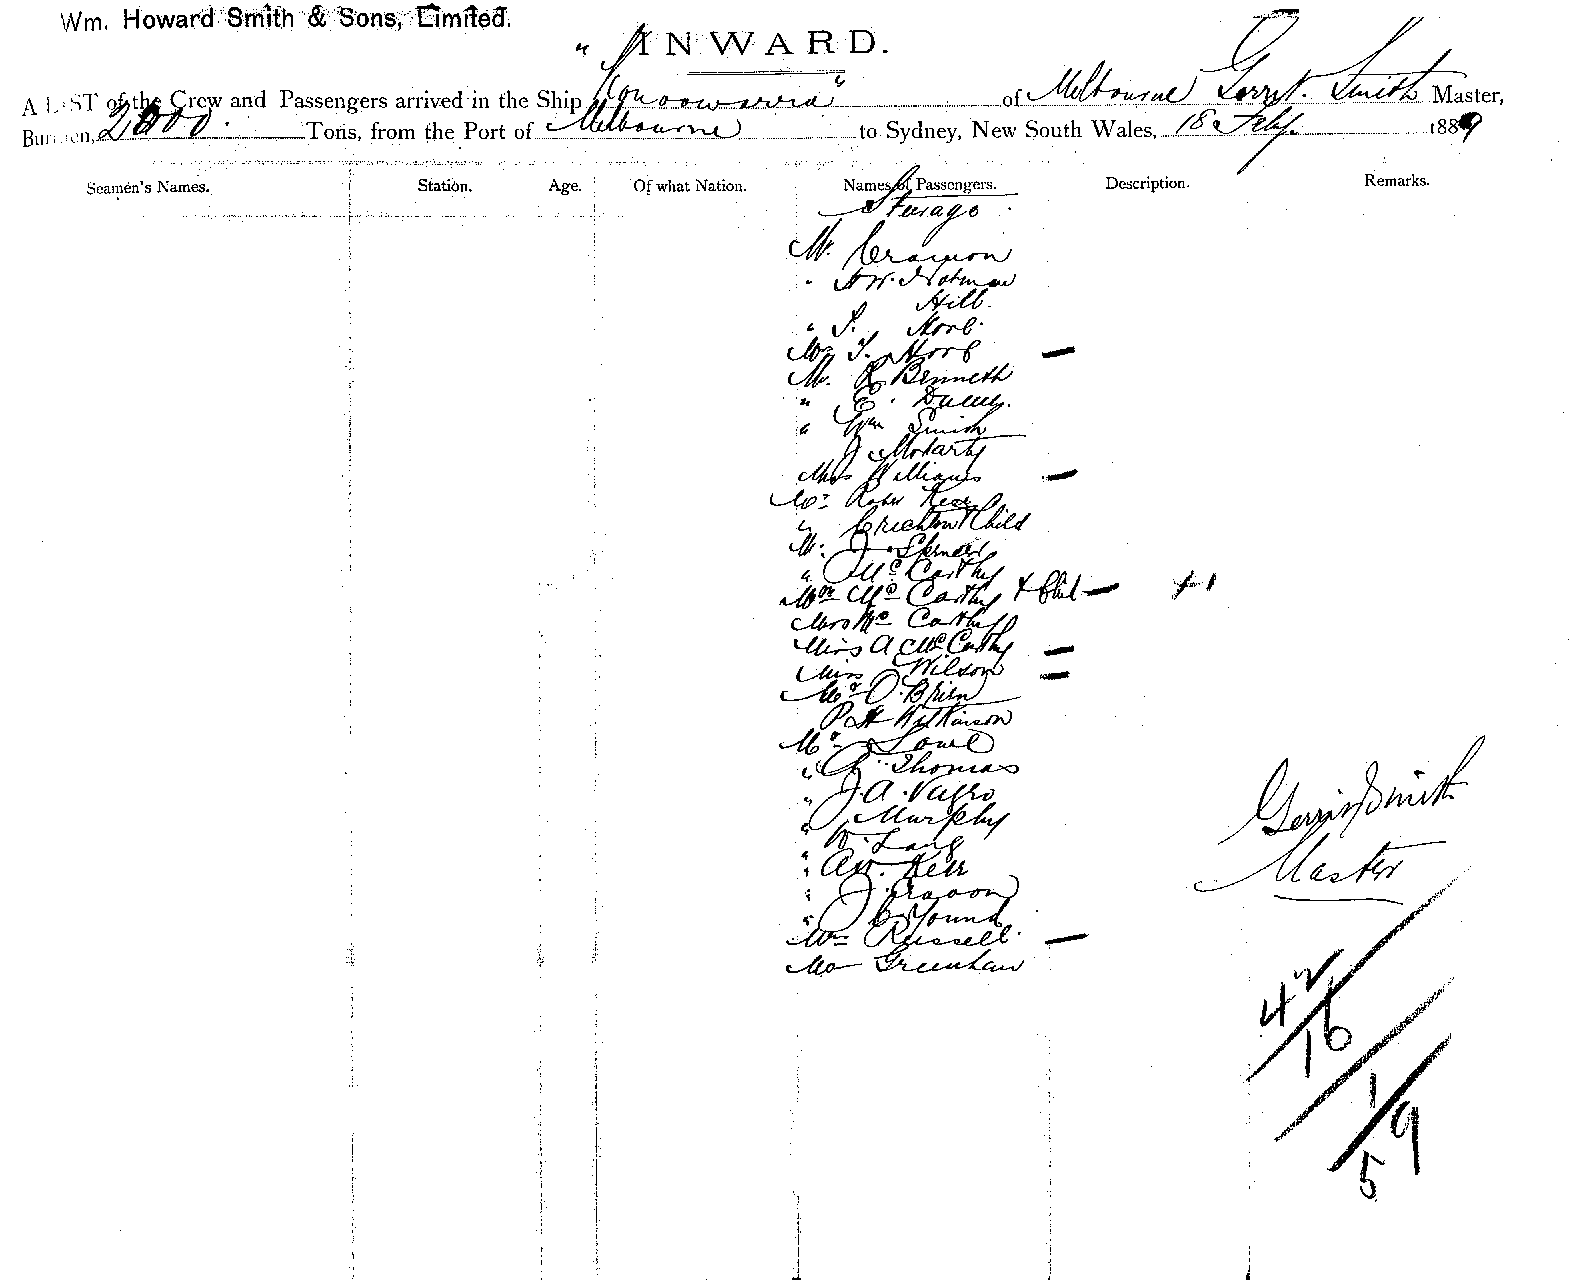 Wm. Howard Smith & Sons, Limited.
INWARD.
A LIST of the Crew and Passengers arrived in the Ship "Konoowarra" of Melbourne Gerrit Smith Master,
Burden, 2000 Tons, from the Port of Melbourne to Sydney, New South Wales, 18 Feby. 1889
Seamen's Names. Station. Age. Of what Nation. Names of Passengers. Description. Remarks.
Steerage
Mr. Crawson
" Notman
Hill.
" S.
Mrs
Mr. R Bennett
" E.
" Wm Smith
J Moriarty
Miss Williams
Mr Robt Kerr
" Crichton & Child
Mr. J. Spencer
" J McCarthy
Mrs McCarthy + Child + 1
Mrs McCarthy
Miss A McCarthy
Miss Wilson
Mr O'Brien
P H Wilkinson
Mr Lowe
" Thomas
" J. A.
" J Murphy
" W. Lang
" A W. Kerr
" J
" J C Young
Mrs Russell
Mr Greenhaw
Gerrit Smith
Master
42/16
1/9
5